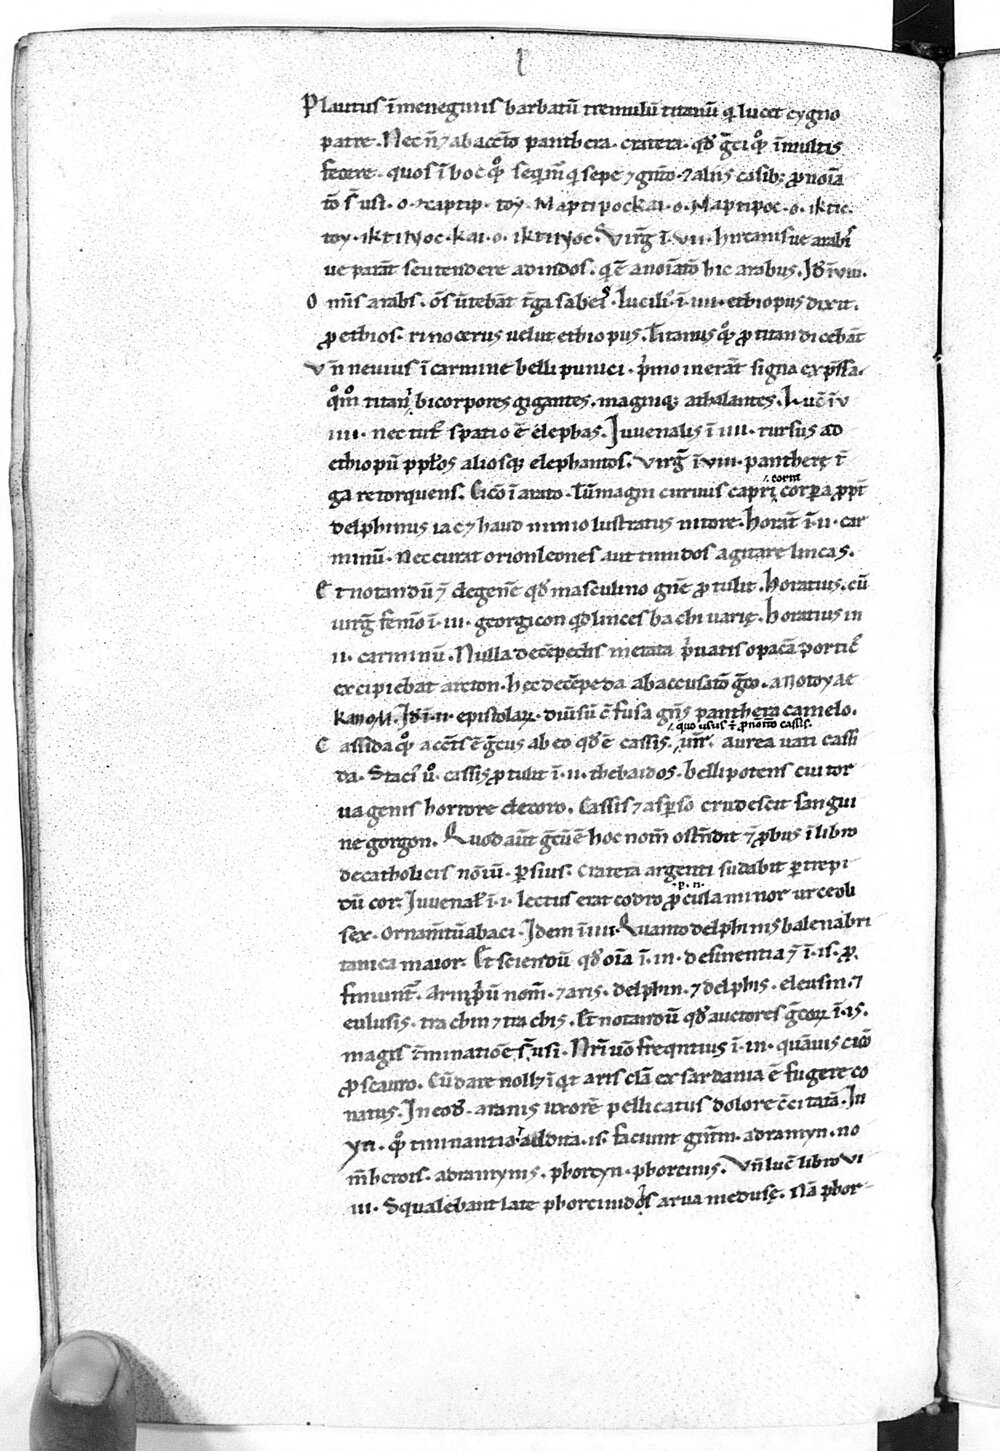 Plautus ī menegmis barbatū tremulū titanū q̄ lucet cygno
patre. Nec n̄ ⁊ ab accto panthera. cratera. qđ ḡci qͦ ī multis
fecere. quos ī hoc qͦ seq̄mͬ q̄ sepe ⁊ gnto. ⁊ aliis casib; ꝓ noīa
to sͬ usi. ο μαρτιρ. τοy μαρτιροc και. ο. μαρτιροc. ο. ικτιc.
τοy. ικτιnοc. και. ο. ικτιnοc. Virḡ ī. vii. hircanisue arabis
ue parāt seu tendere ad indos. q̄ ē a noīato hic arabus. Jđ ī viii.
Omīs arabs. ōs ūtebāt t̄ga sabei. Luciliͥ ī. iiii. ethiopus dixit.
ꝓ ethios. rinocerus uelut ethiopus. Titanus qͦ; ꝓ titan dicebāt
Vn̄ nevius ī carmine belli punici. p̄mo inerāt signa exp̄ssa.
qͦmͦ titani bicorpores gigantes. magniq; athalantes. Luc̄ ī v
iiii. nec tut̄ spatio ē elephas. Juvenalis ī iiii. rursus ad
ethiopū ppl̄os aliosq; elephantos. Virḡ ī viii. pantherę t̄
ga retorquens. Cic̄o ī arato. Tū magni curuus capri corpora ꝓpt̄
cornī
delphinus iac⁊ haud nimio lustratus nitore. horat̄ ī. ii. car
minū. Nec curat orion leones aut timidos agitare lincas.
Et notandū ⁊ de gene qđ masculino gn̄e ꝓtulit. horatius. cū
uirḡ fem̄o ī. iii. georgicon qđ linces bachi varię. horatius in
ii. carminū. Nulla decēpedis metata p̄uatis opacā porticꝰ
excipiebat arcton. hec decēpeda ab accusato ḡco. απο τογ αε
καποΜ. Jđ ī. ii. epistolaꝝ. diuisū cͦfusa gn̄s panthera camelo.
Cassida qͦ acc̄ts ē ḡcus ab eo qđ ē cassis. uirͥ. aurea uati cassi
quo usus ī ꝓnoīto cassis.
da. Staciͥ ůͦ. cassis ꝓtulit ī. ii. thebaidos. bellipotens cui tor
ua genis horrore decoro. Cassis ⁊ asp̄so crudescit sangui
ne gorgon. Quod aūt ḡcū ē hoc nom̄ ostn̄dit ⁊ p̄bus ī libro
de catholicis noīū. ꝑsius. Cratera argenti sudabit ꝑ trepi
dū cor. Juvenal̄ ī. i. lectus erat codro ꝓcula minor urceoli
.p.n.
sex. Ornam̄tū abaci. Idem ī iiii. Quanto delphinis balena bri
tanica maior. Et sciendū qđ oīa ī. in. desinentia ⁊ ī. is. ꝓ
finiunt. delphin. ⁊ delphis. eleusin. ⁊
eulusis. trachin ⁊ trachis. Et notandū qđ auctores ḡcoꝝ ī. is.
magis t̄minatiōe sͬ usi. Nr̄i uō freqntius ī. in. quāuis cic̄o
ꝓ scauro. Cū dare noll⁊ īqt aris clā ex sardania ē fugere co
natus. In eođ. aranis uxorē pellicatus dolore c̄citatā. In
yn. qͦ t̄minantia addita. is. faciunt gnt̄m. adramyn. no
m̄ herois. adramynis. phorcyn. phorcinis. Vn̄ luc̄ libro vi
iii. Squalebant late phorcinidos arva medusę. Nā phor-